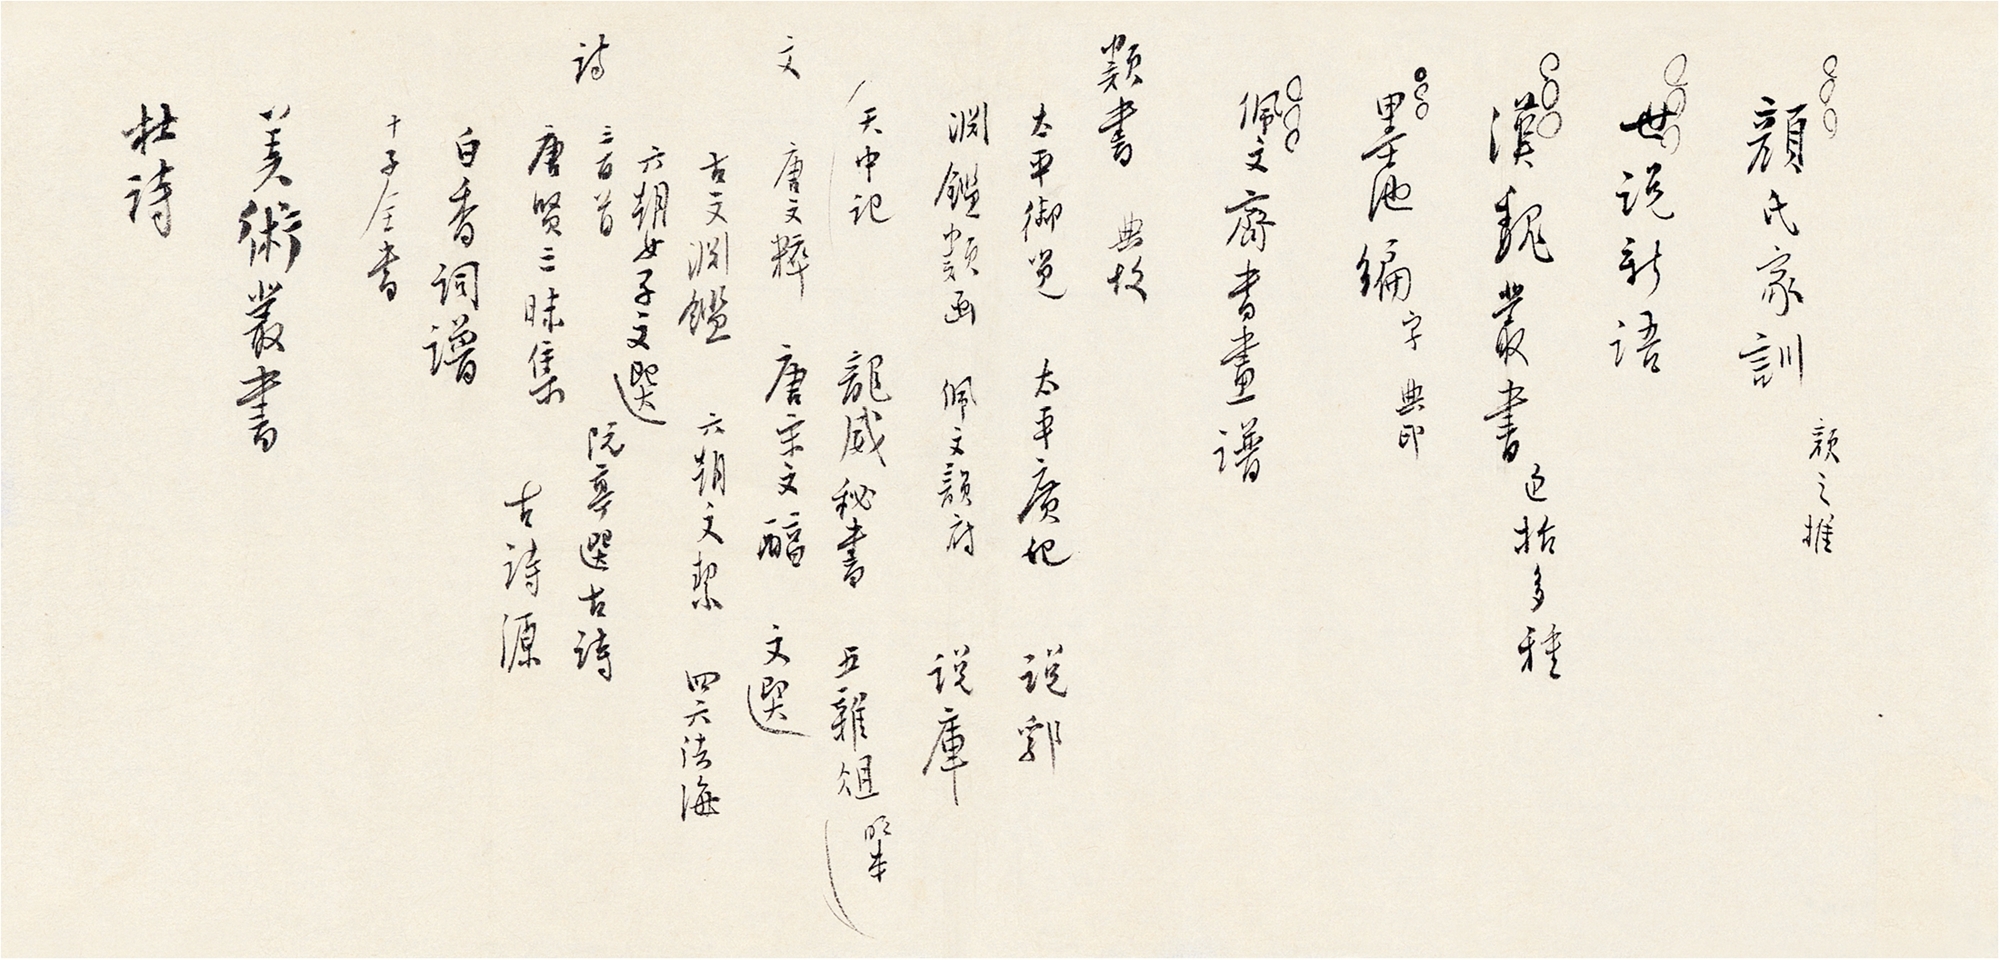 顔氏家訓 顔之推
世说新语
漢魏叢書 包括多種
墨池編 字典印
佩文齋書畫譜
類書 典故
太平御览 太平廣記 说郛
渊鑑類函 佩文韻府 说庫
天中记 龍威秘書 五雜俎 明本
文 唐文粹 唐宋文醇 文選
古文渊鑑 六朝文絜 四六法海
六朝女子文選
詩 三百首 阮亭選古詩
唐賢三昧集 古詩源
白香词譜
十子全書
美術叢書
杜詩